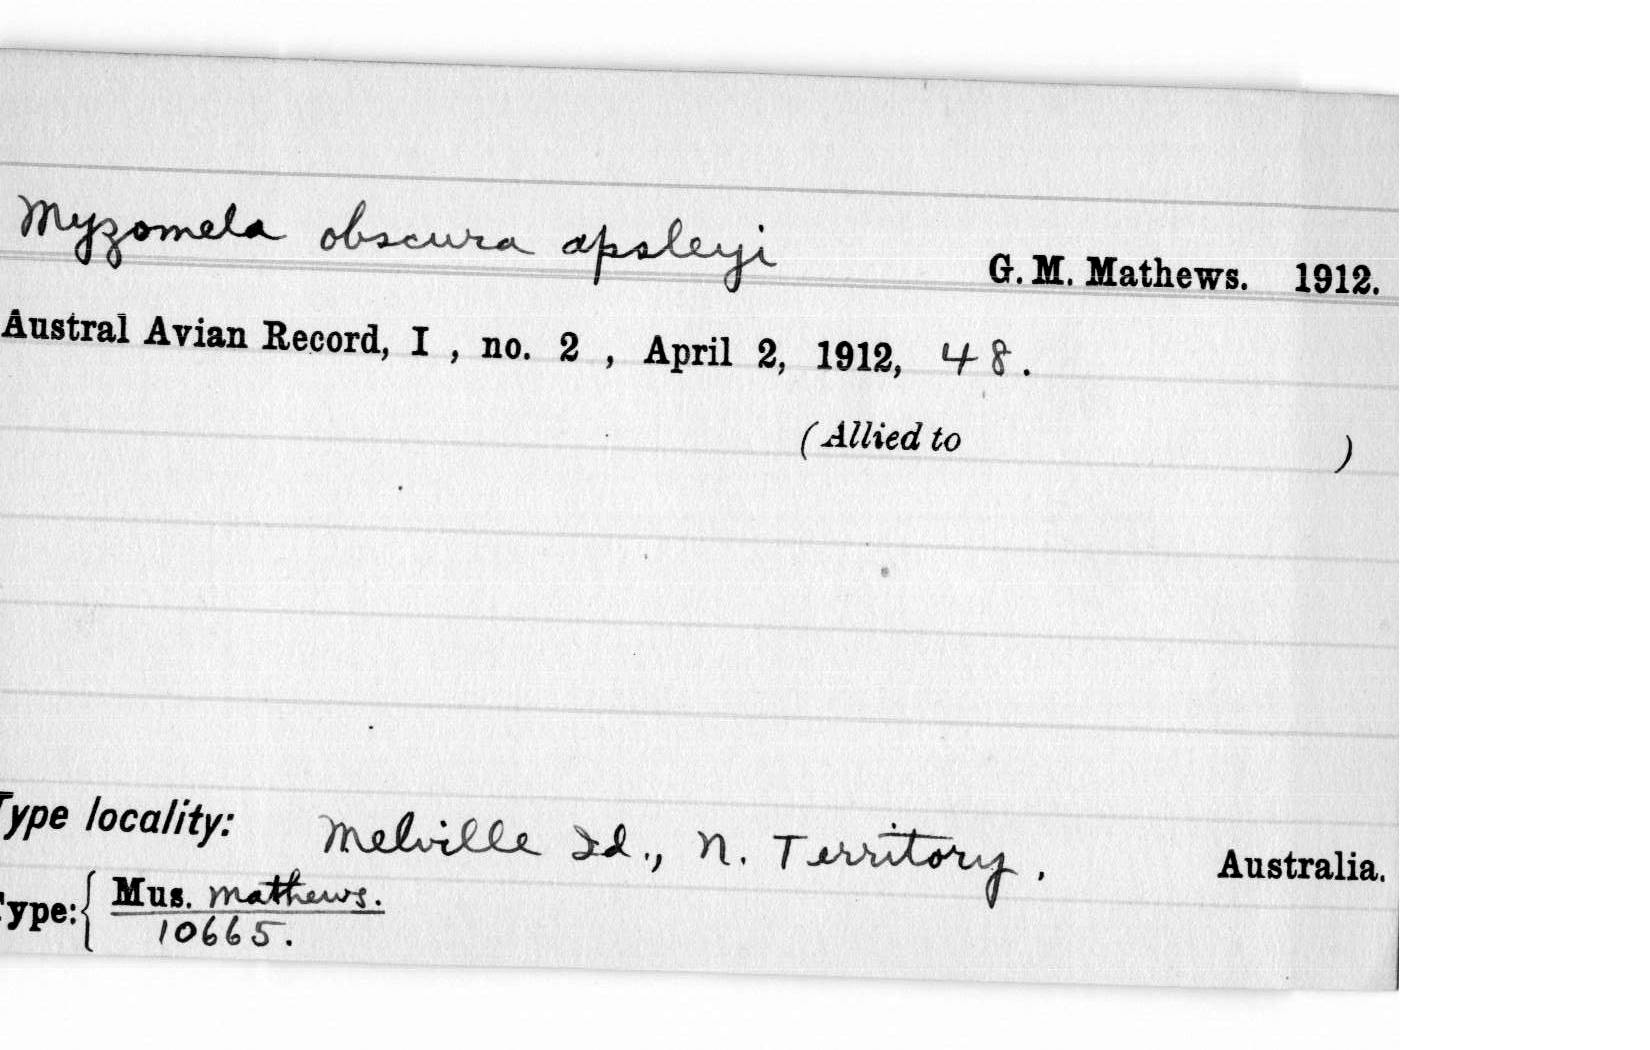 Myzomela obscura apsleyi
G. M. Mathews. 1912.
Austral Avian Record, I , no. 2 , April 2, 1912, 48.
(Allied to )
Type locality: Melville Id., N. Territory. Australia.
Type: { Mus. Mathews.
10665.